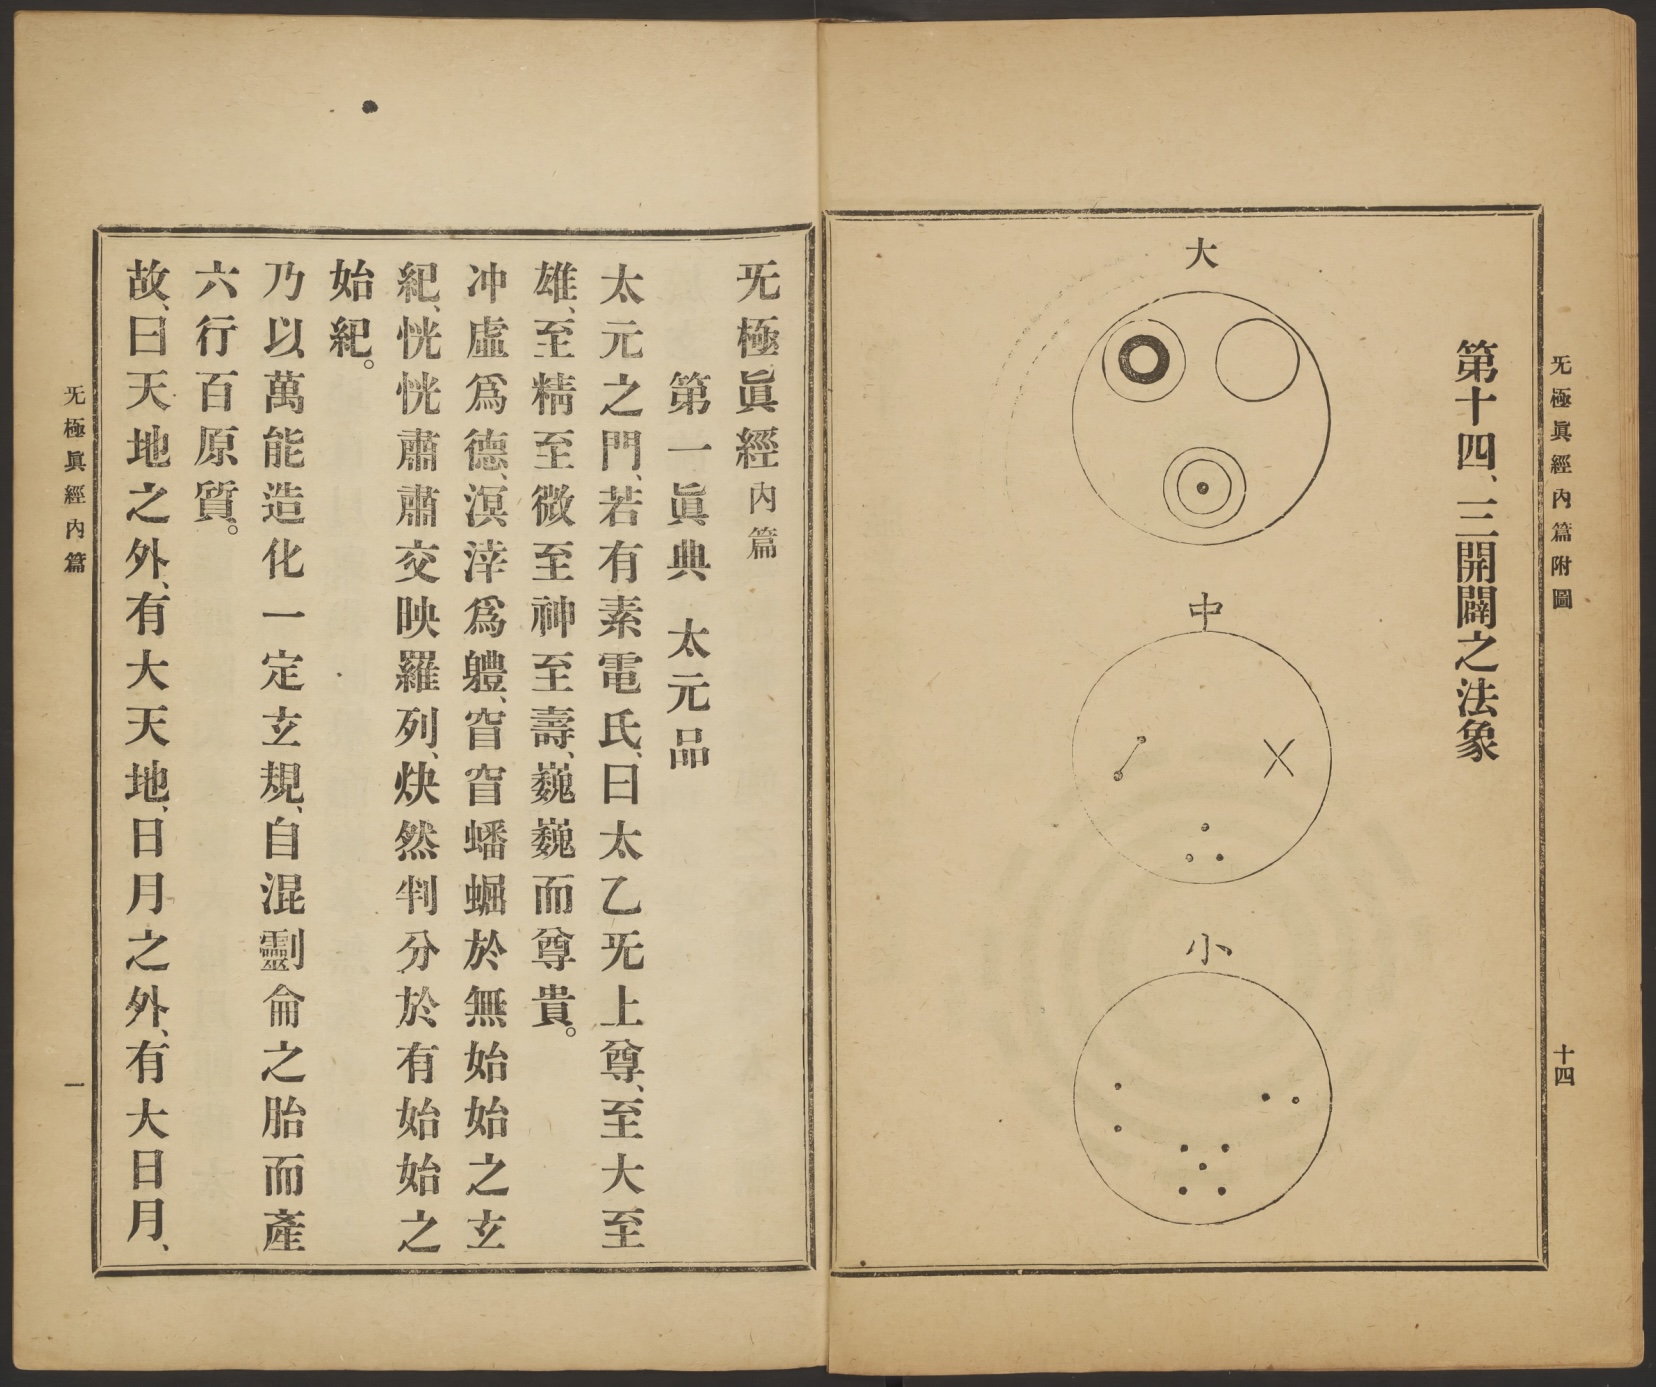 无極眞經內篇附圖
十四
第十四、三開闢之法象
大
中
小
无極眞經內篇
第一眞典 太元品
太元之門、若有素電氏、曰太乙无上尊、至大至
雄、至精至微至神至壽、巍巍而尊貴。
冲虛爲德、溟涬爲軆、窅窅蟠蜛於無始始之玄
紀、恍恍肅肅交映羅列、炔然判分於有始始之
始紀。
乃以萬能造化一定玄規、自混劏侖之胎而產
六行百原質。
故、曰天地之外、有大天地、日月之外、有大日月、
无極眞經內篇
一